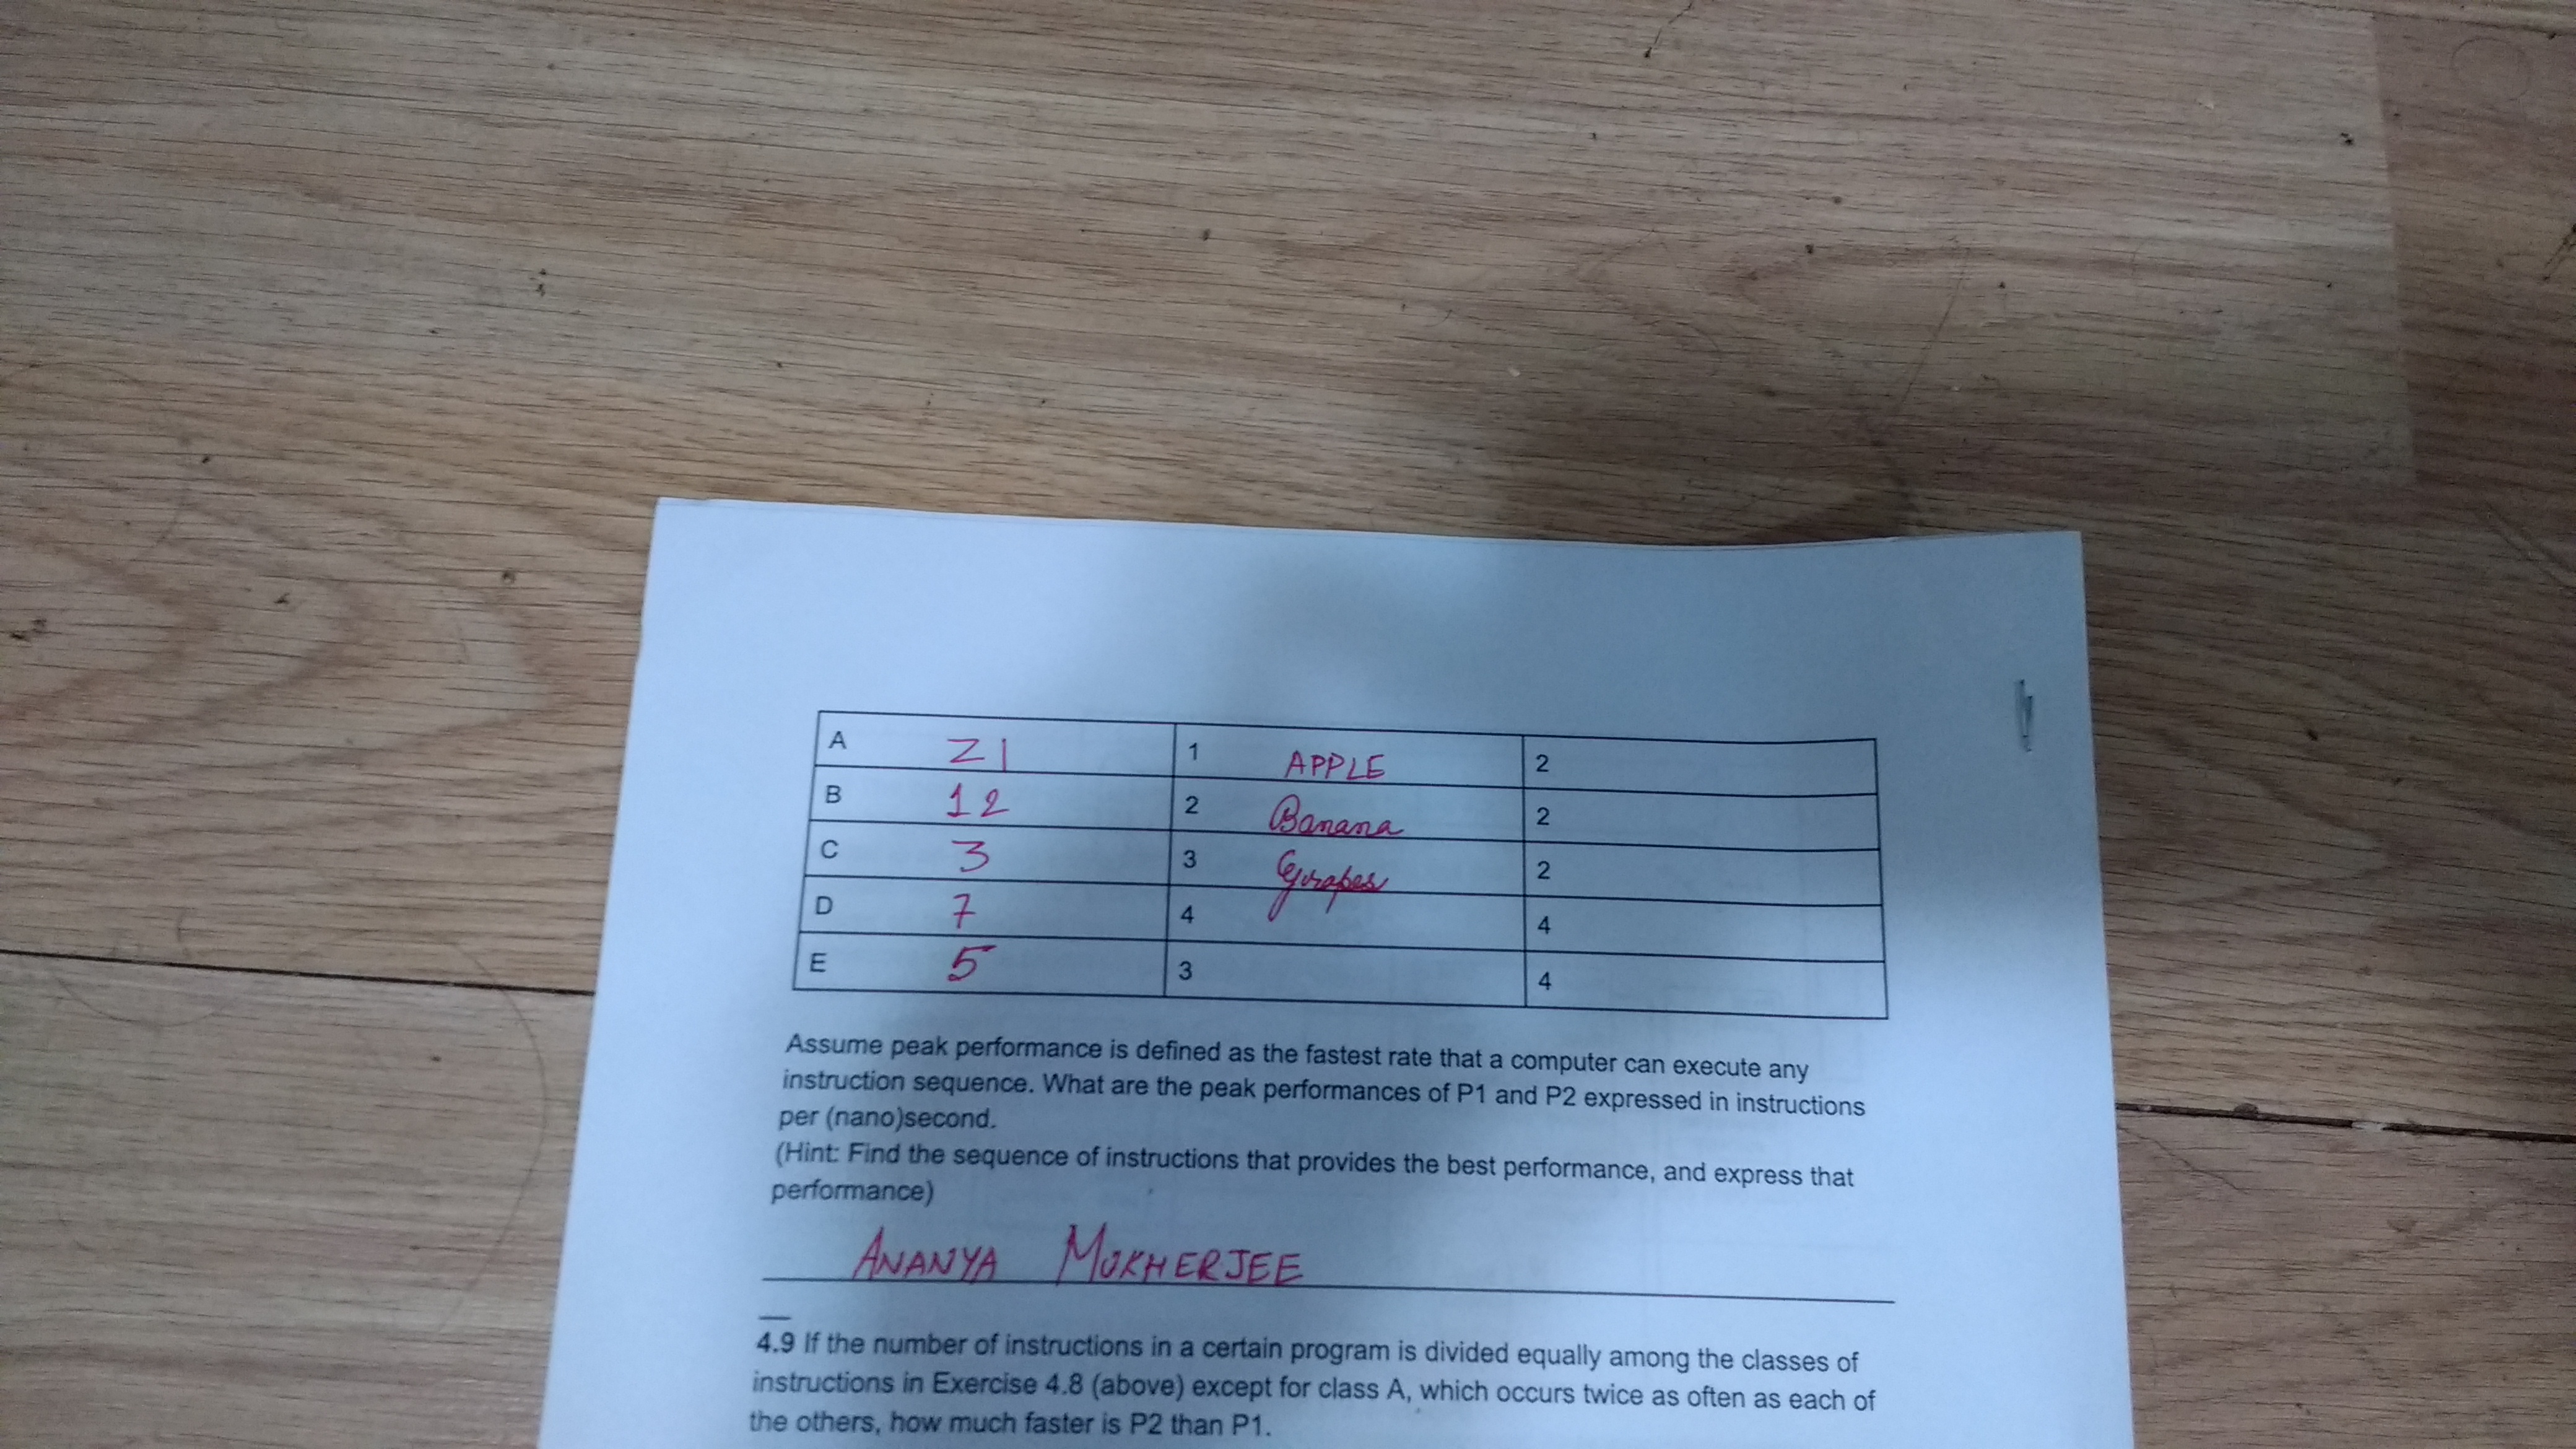 A Z1 1 APPLE 2
B 12 2 Banana 2
C 3 3 Grapes 2
D 7 4 4
E 5 3 4
Assume peak performance is defined as the fastest rate that a computer can execute any
instruction sequence. What are the peak performances of P1 and P2 expressed in instructions
per (nano)second.
(Hint: Find the sequence of instructions that provides the best performance, and express that
performance)
ANANYA MUKHERJEE
4.9 If the number of instructions in a certain program is divided equally among the classes of
instructions in Exercise 4.8 (above) except for class A, which occurs twice as often as each of
the others, how much faster is P2 than P1.